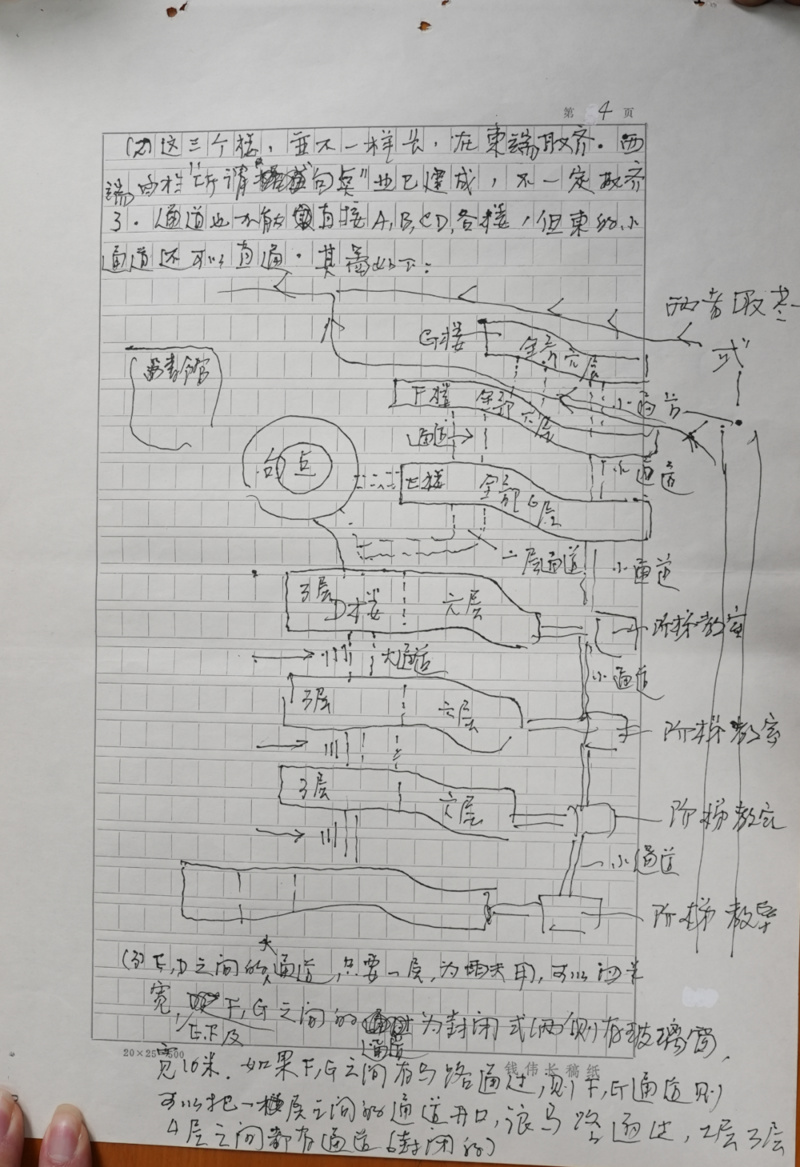 第 4 页
(2)这三个楼，并不一样长，在東端取齐．西
端由於"所谓句点"业已建成，不一定取齐
了．通道也不能直接A,B,C,D,各楼，但東的小
通道还可以直通．其图如下：
G楼
全部六层
式
图書館
F楼 全部六层
小通道
通道
句点
E楼 全部6层
小通道
二层通道
小通道
3层
D楼 六层
阶梯教室
大通道
小通道
3层 六层
阶梯教室
3层 六层
阶梯教室
小通道
阶梯教室
(3) E,D之间的大通道，只要一层，为雨天用，可以
宽，E,F及F,G之间的通道为封闭式(两侧有玻璃窗，
20×25=500
钱伟长稿纸
宽10米．如果F,G之间有马路通过，则F,G通道则
可以把一楼层之间的通道开口，讓马路通过，2层3层
4层之间都有通道(封闭的)